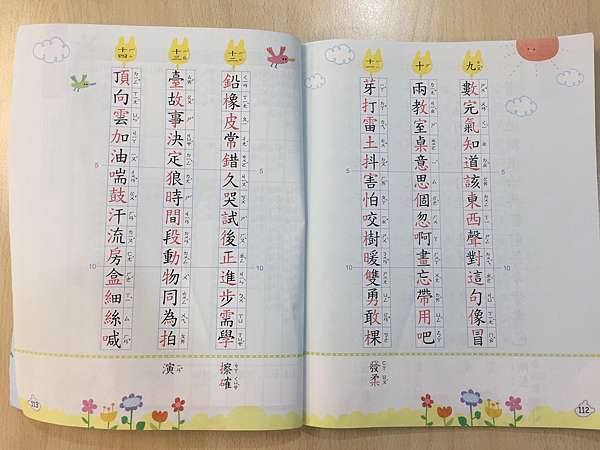 九
數完氣知道該東西聲對這句像冒
十
兩教室桌意思個忽啊畫忘帶用吧
十一
芽打雷土抖害怕咬樹暖雙勇敢棵
發柔
5
10
112
十二
鉛橡皮常錯久哭試後正進步需學
擦確
十三
臺故事決定狼時間段動物同為拍
演
十四
頂向雲加油喘鼓汗流房盒細絲喊
5
10
113